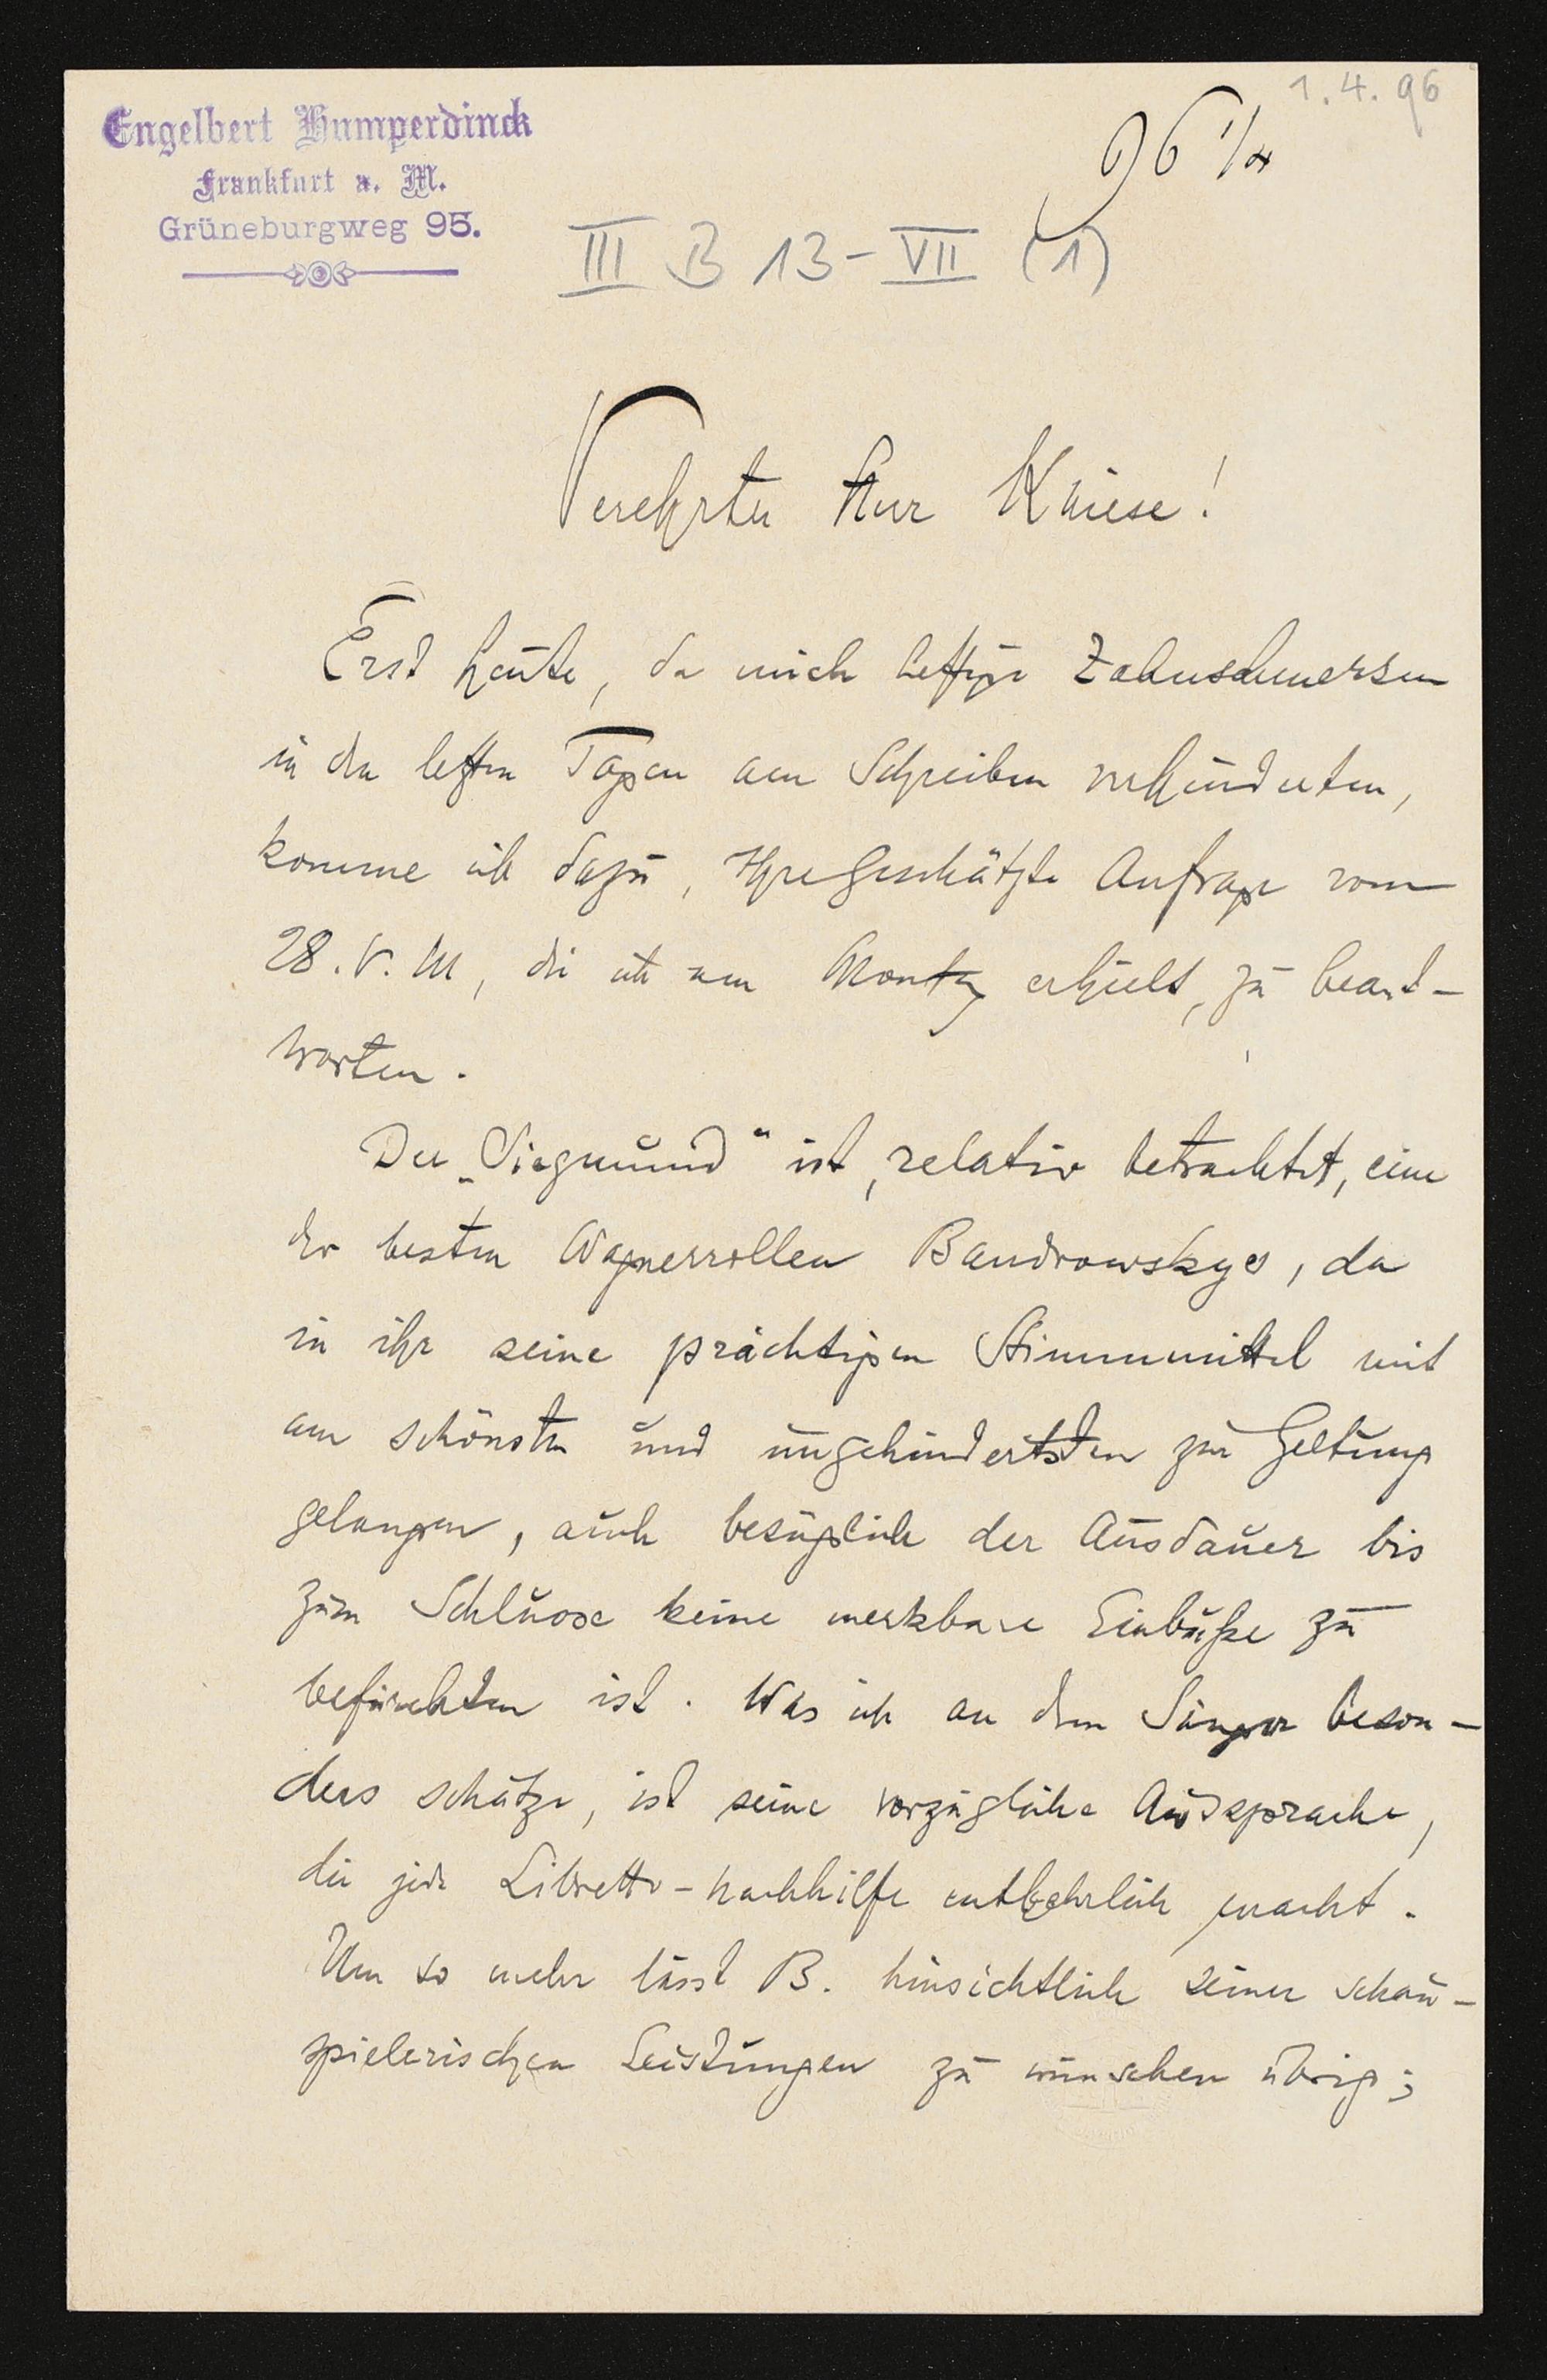 1.4.96
Engelbert Humperdinck
Frankfurt a. M.
Grüneburgweg 95.
96 1/4
III B 13 - VII (1)
Verehrter Herr Kniese!
Erst heute, da mich heftige Zahnschmerzen
in den letzten Tagen am Schreiben verhinderten,
komme ich dazu, Ihre geschätzte Anfrage vom
28. v. M, die ich am Montag erhielt, zu beant-
worten.
Der „Siegmund“ ist, relativ betrachtet, eine
der besten Wagnerrollen Bandrowskys, da
in ihr seine prächtigen Stimmmittel mit
am schönsten und ungehindertsten zur Geltung
gelangen, auch bezüglich der Ausdauer bis
zum Schlusse keine merkbare Einbuße zu
befürchten ist. Was ich an dem Sänger beson-
ders schätze, ist seine vorzügliche Aussprache,
die jede Libretto-Nachhilfe entbehrlich macht.
Um so mehr lässt B. hinsichtlich seiner schau-
spielerischen Leistungen zu wünschen übrig;